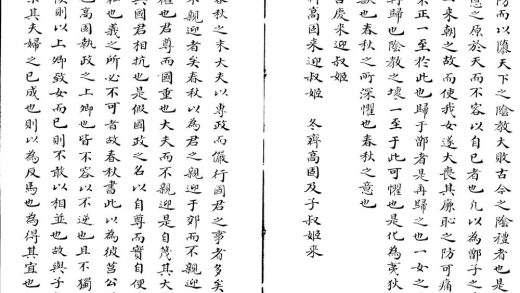 防而以隳天下之陰教大敗古今之陰禮者也是
之原於天而不容以自已者也凢以為鄫子之
一來朝之故而使我女遂大喪其廉恥之防可痛
不正一至於此也歸于鄫者是再歸之也一女之
再歸也陰教之壞一至于此可懼也是化為夷狄
也春秋之所深懼也春秋之意也
慶來迎叔姬
齊高固來迎叔姬　冬齊高固及子叔姬來
春秋之末大夫以專政而儼行國君之事者多矣
不親迎者矣春秋以為君之親迎于郊而不親迎
也君尊而國重也大夫而不親迎是自茂其大
與國君相抗也是假國政之名以自尊而實自便
私也義之所必不可者故春秋書此以為彼莒公
高固執政之上卿也皆不容以不逆也且不獨
則以上卿致女而已則不敢以相並也故與子
來其夫婦之已成也則以為反馬也為得其宜也